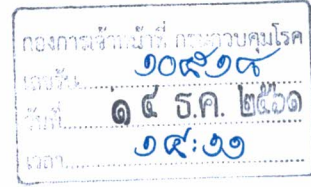 กองการเจ้าหน้าที่ กรมควบคุมโรค
เลขรับ ๑๐๘๑๘
วันที่ ๑๔ ธ.ค. ๒๕๖๑
เวลา ๑๔:๑๑